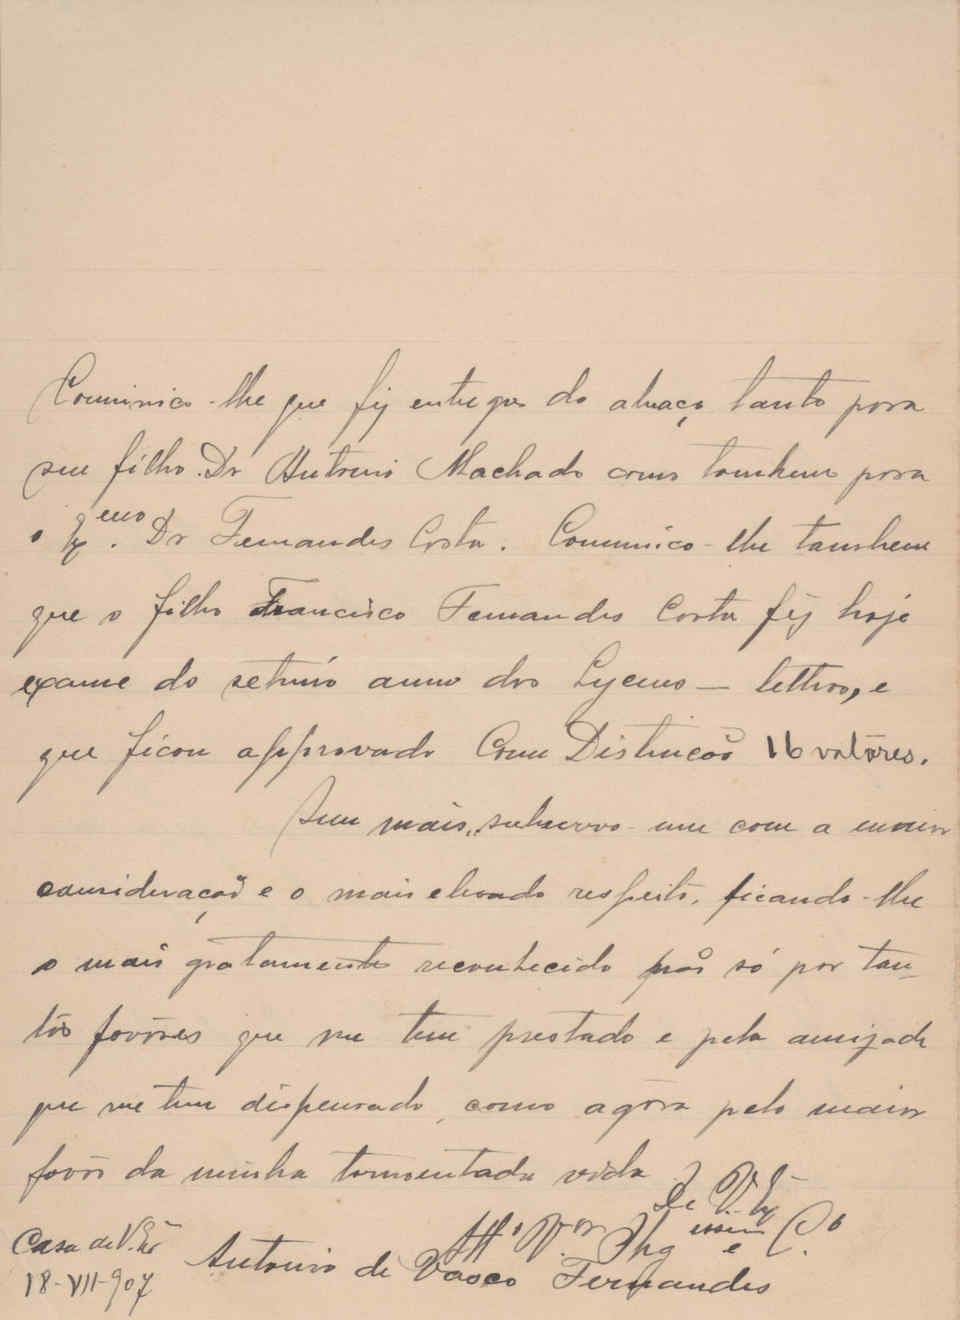 Comunico-lhe que fiz entregas do abraço tanto para
seu filho Dr Antonio Machado como tambem para
o Exmo. Dr Fernandes Costa. Comunico-lhe tambem
que o filho Francisco Fernandes Costa fez hoje
exame do setimo anno dos Lyceus — lettras, e
que ficou approvado Com Distincão 16 valores.
Sem mais, subscrevo-me com a maior
consideração e o mais elevado respeito, ficando-lhe
o mais gratamente reconhecido não só por tan-
tos favôres que me tem prestado e pela amizade
que me tem dispensado, como agora pelo maior
favôr da minha tormentada vida
De V. Ex
Att Vor Obg e C.º
Casa de V. Ex
Antonio de Vasco Fernandes
18-VII-907